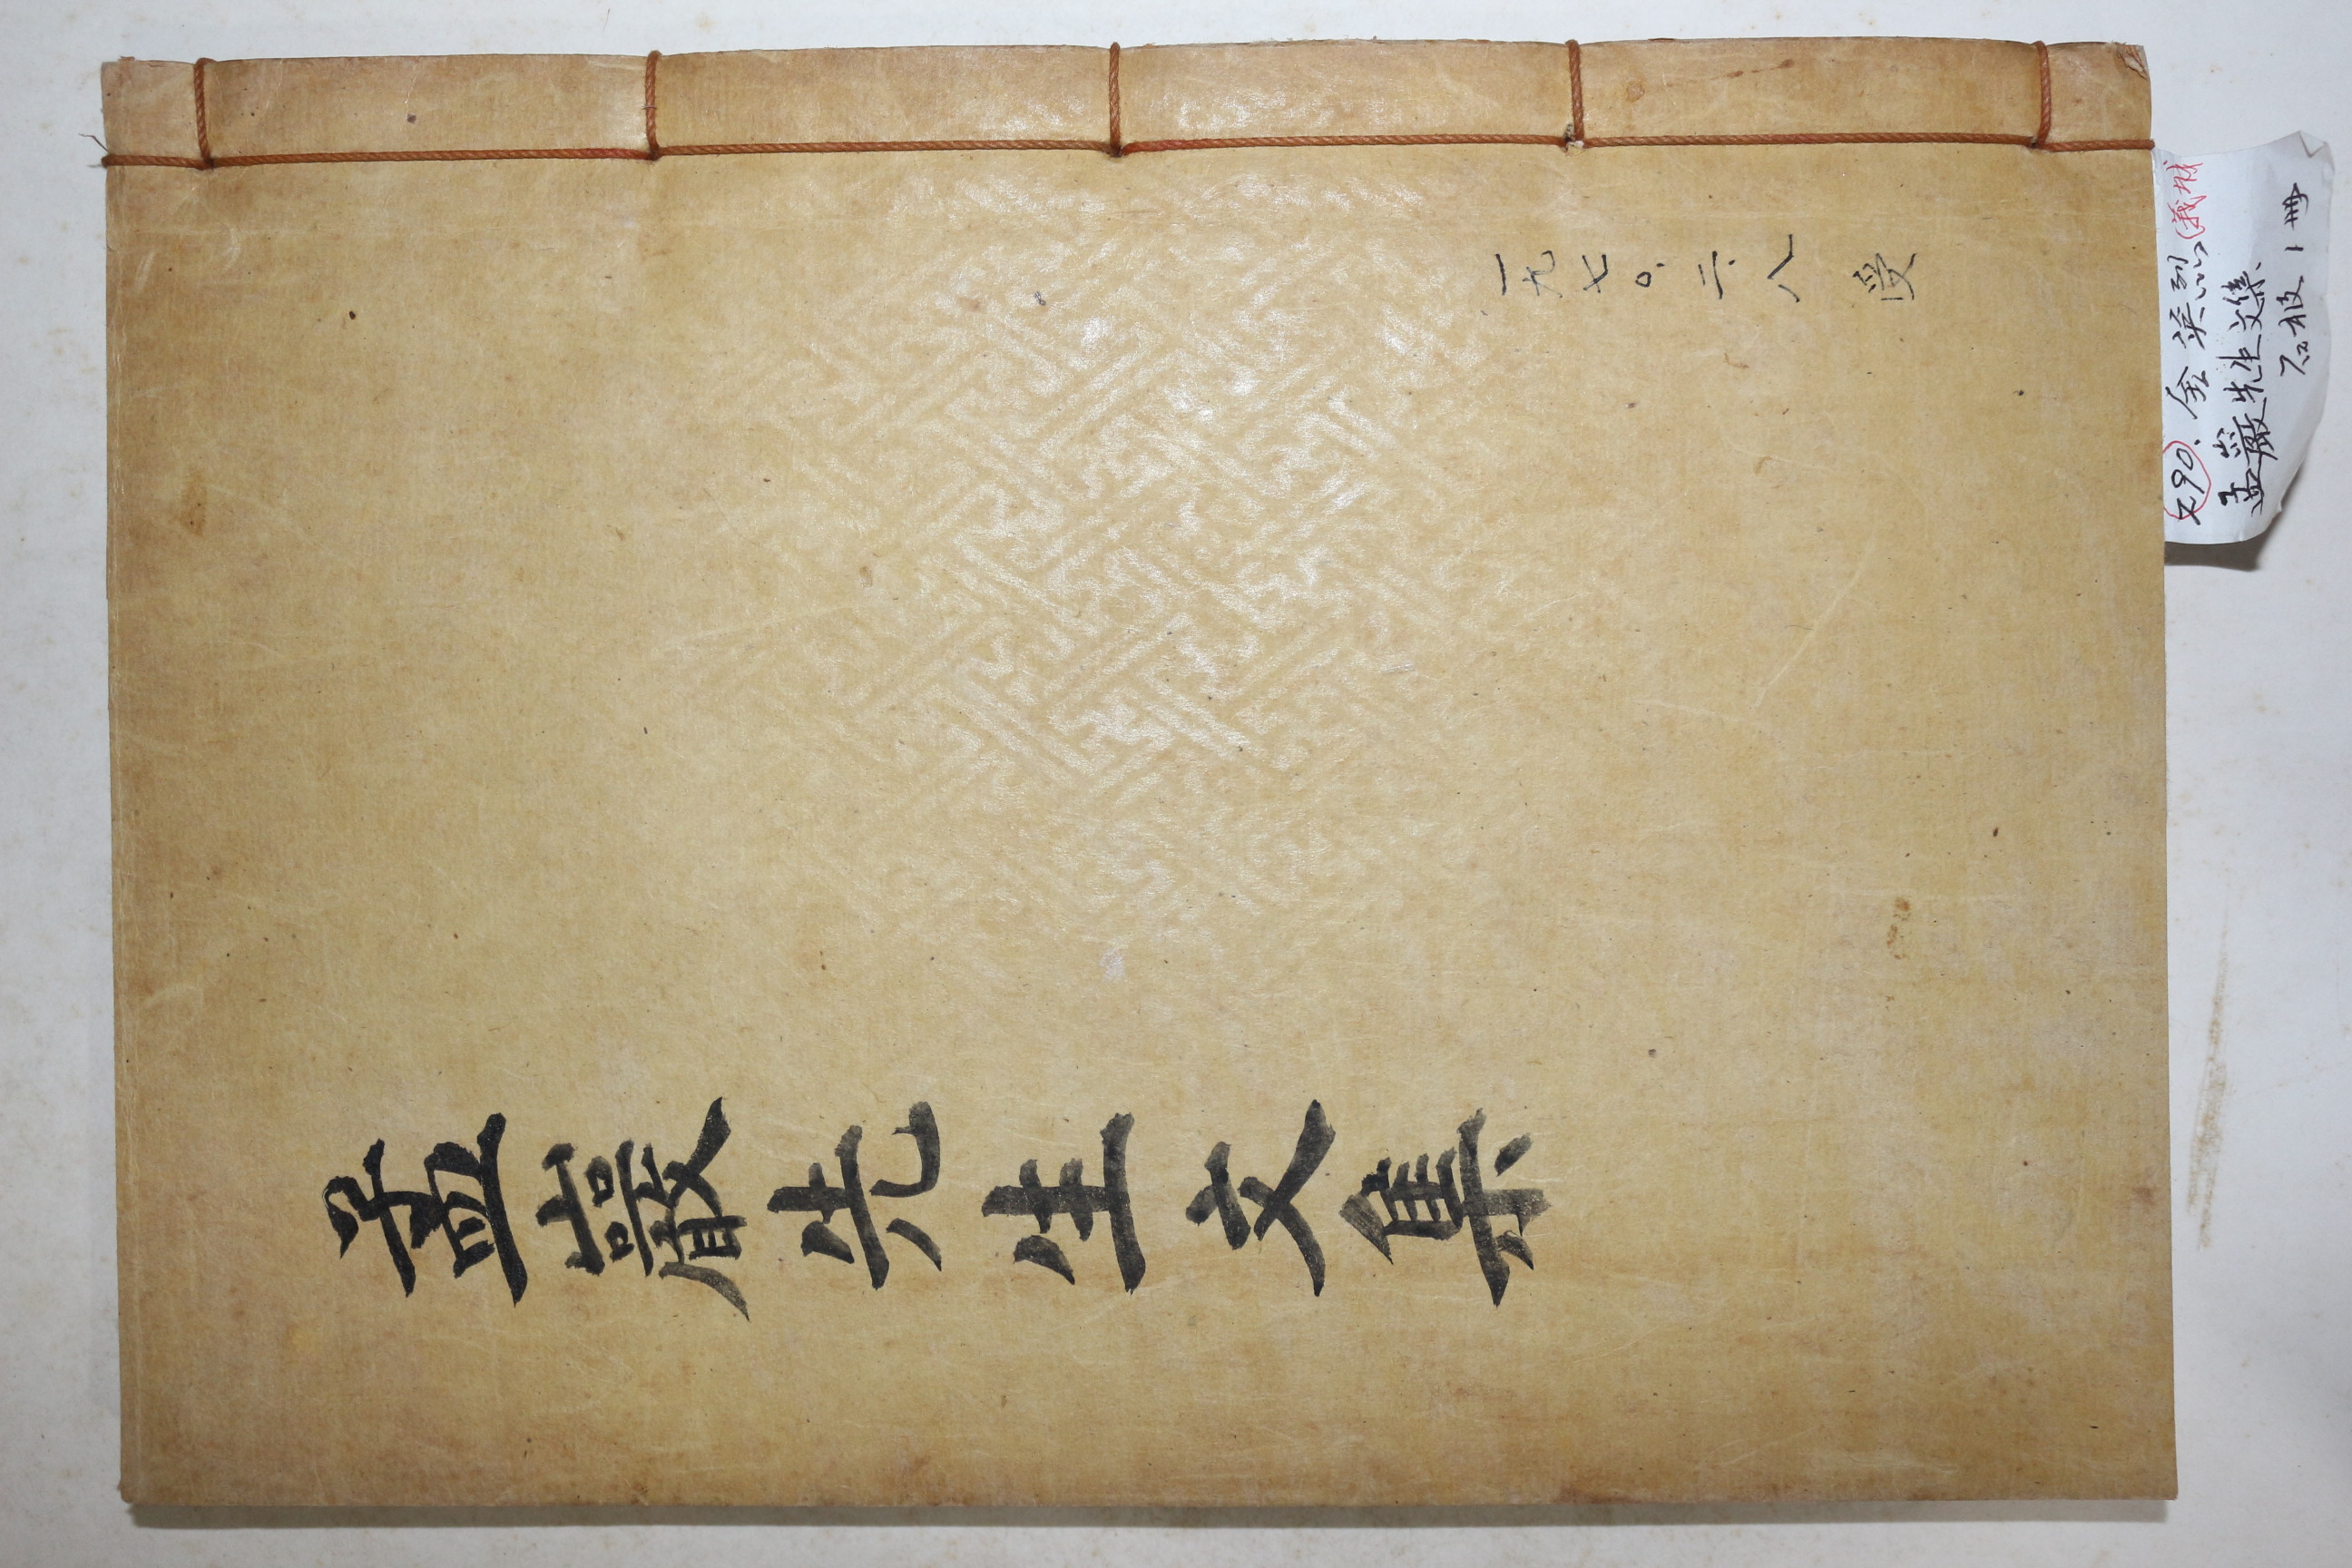 孟巖先生文集
一九七〇.二.八 受
290. 金英烈 (義城
孟巖先生文集
石板 1冊